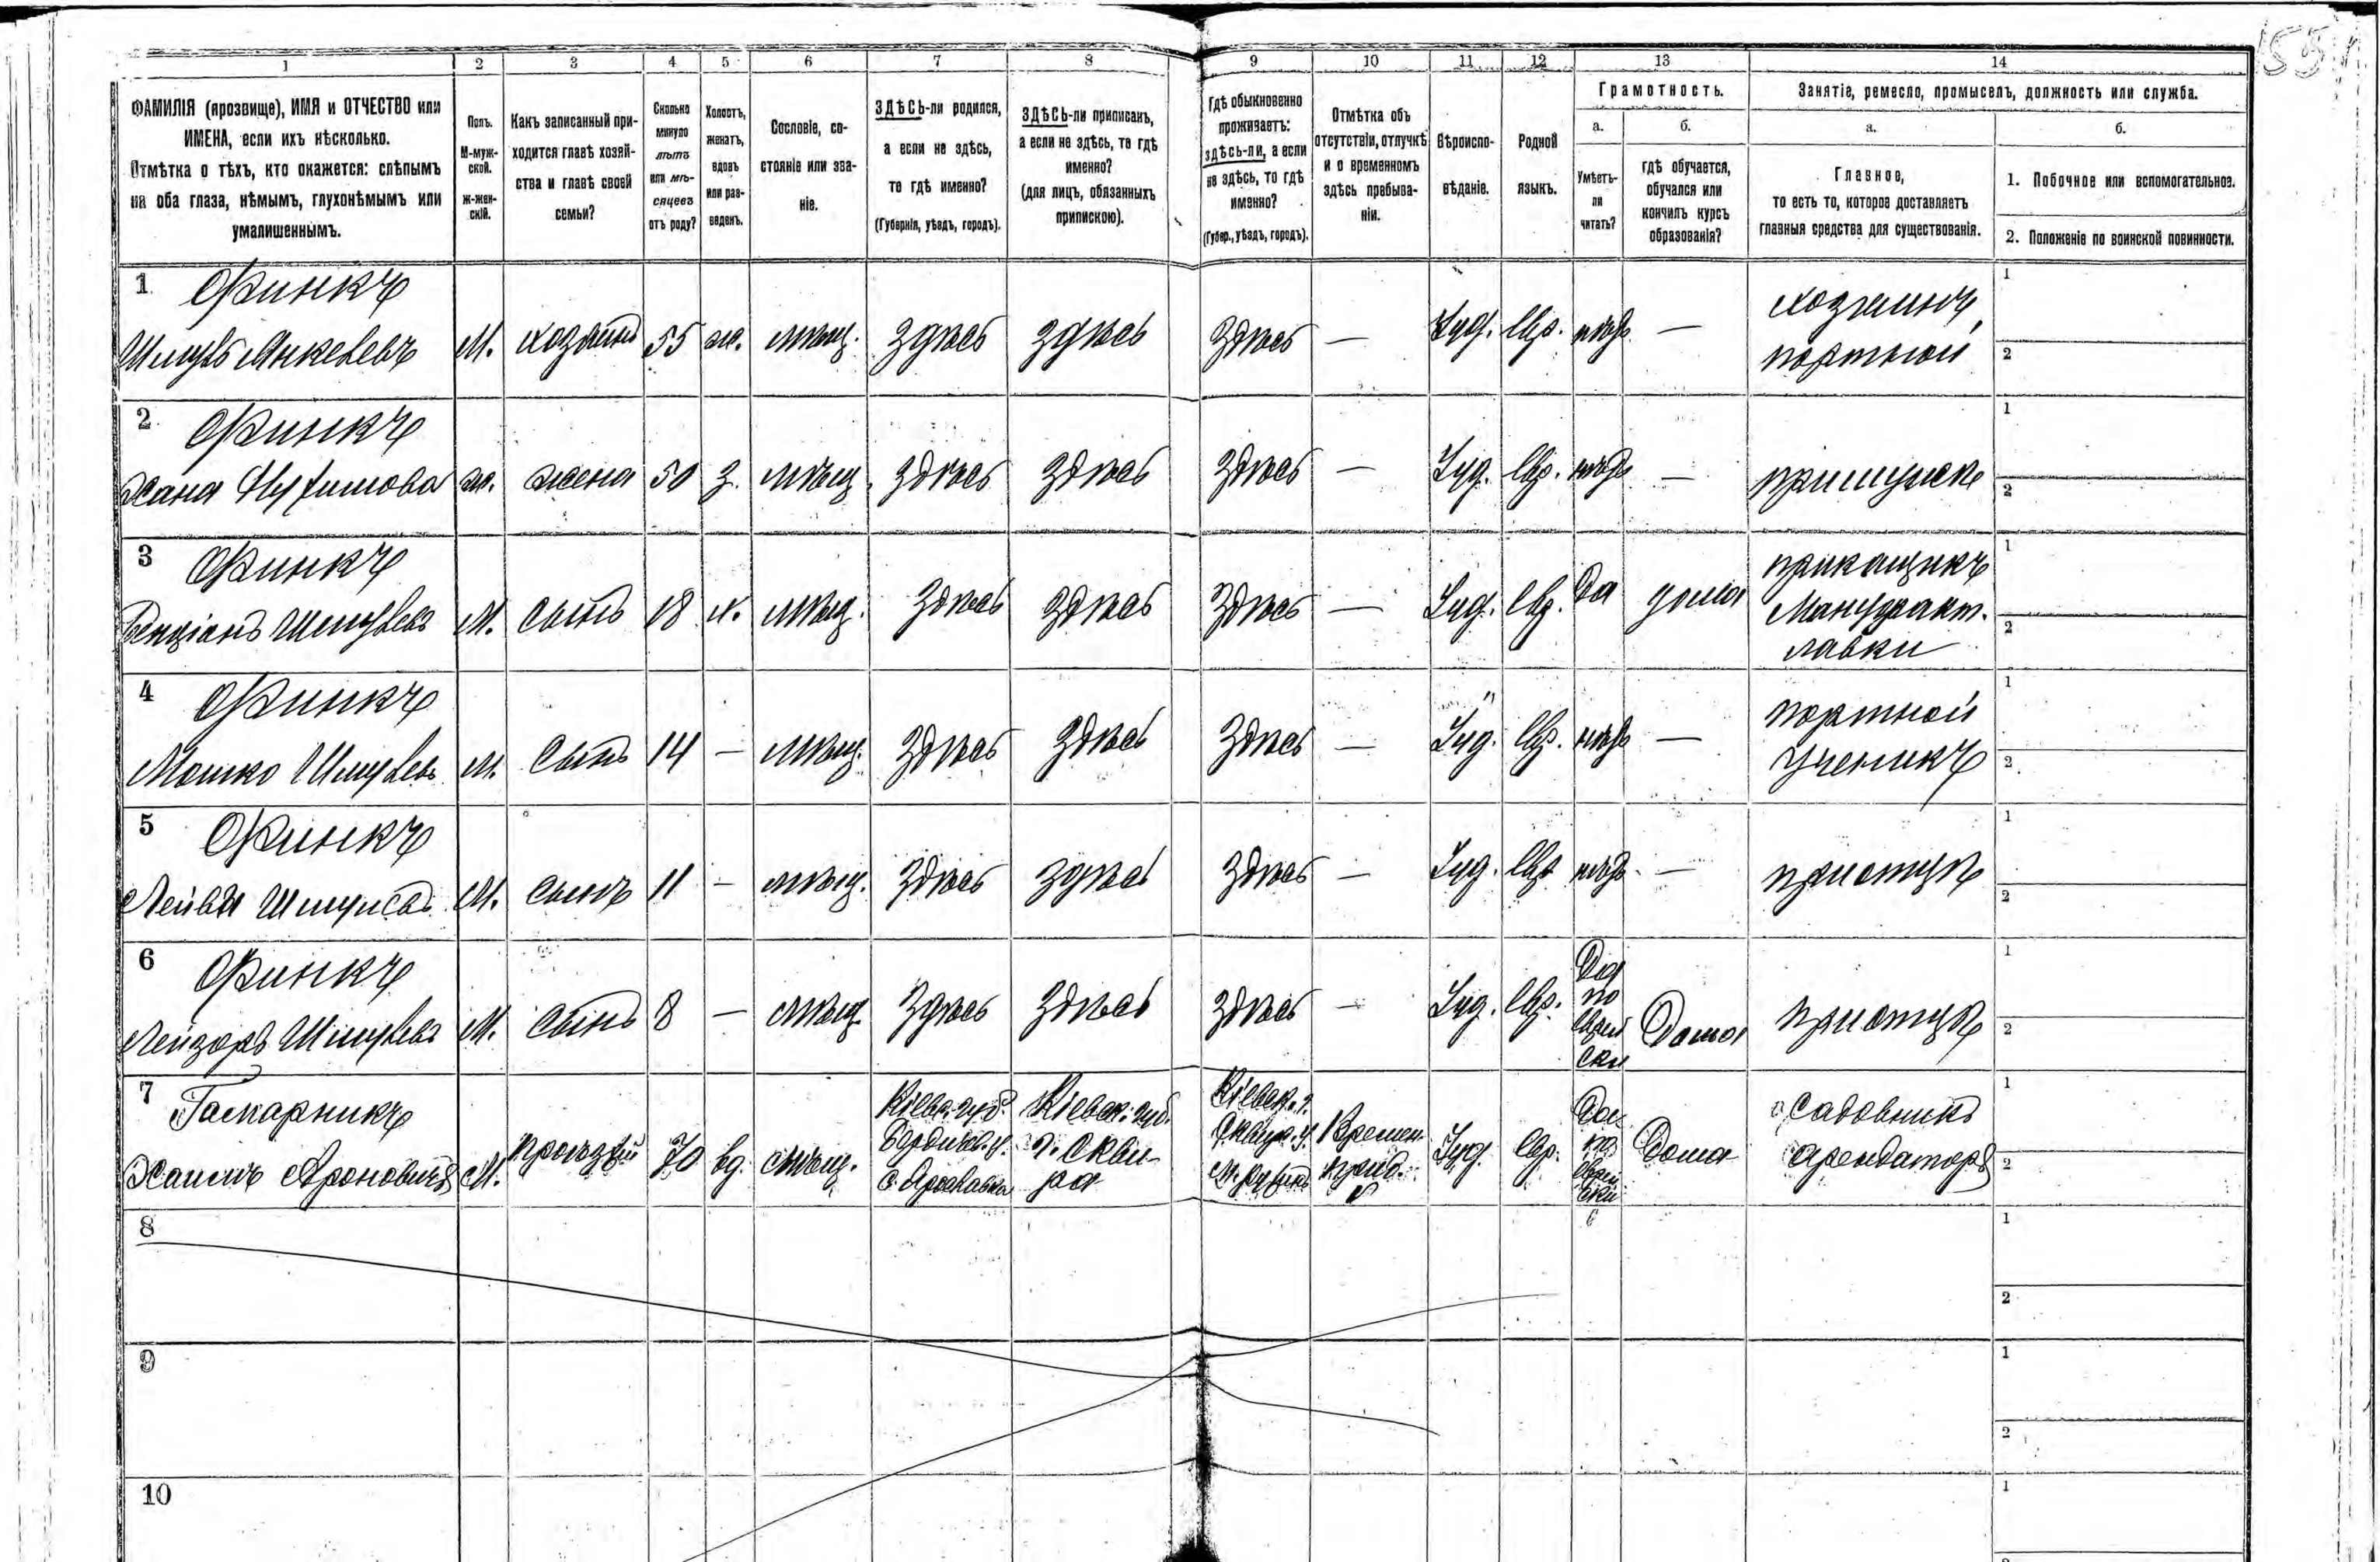 1 2 3 4 5 6 7 8 9 10 11 12 13 14
ФАМИЛІЯ (прозвище), ИМЯ и ОТЧЕСТВО или
ИМЕНА, если ихъ нѣсколько.
Отмѣтка о тѣхъ, кто окажется: слѣпымъ
на оба глаза, нѣмымъ, глухонѣмымъ или
умалишеннымъ.
Полъ.
М-муж-
ской.
ж-жен-
скій.
Какъ записанный при-
ходится главѣ хозяй-
ства и главѣ своей
семьи?
Сколько
минуло
лѣтъ
или мѣ-
сяцевъ
отъ роду?
Холостъ,
женатъ,
вдовъ
или раз-
веденъ.
Сословіе, со-
стояніе или зва-
ніе.
ЗДѢСЬ-ли родился,
а если не здѣсь,
то гдѣ именно?
(Губернія, уѣздъ, городъ).
ЗДѢСЬ-ли приписанъ,
а если не здѣсь, то гдѣ
именно?
(для лицъ, обязанныхъ
припискою).
Гдѣ обыкновенно
проживаетъ:
здѣсь-ли, а если
не здѣсь, то гдѣ
именно?
(Губер., уѣздъ, городъ).
Отмѣтка объ
отсутствіи, отлучкѣ
и о временномъ
здѣсь пребыва-
ніи.
Вѣроиспо-
вѣданіе.
Родной
языкъ.
Грамотность.
а.
Умѣетъ-
ли
читать?
б.
гдѣ обучается,
обучался или
кончилъ курсъ
образованія?
Занятіе, ремесло, промыселъ, должность или служба.
а.
Главное,
то есть то, которое доставляетъ
главныя средства для существованія.
б.
1. Побочное или вспомогательное.
2. Положеніе по воинской повинности.
1 Финкъ
Шмуль Янкелевъ М. хозяинъ 55 ж. мѣщ. здѣсь здѣсь здѣсь — Іуд. Евр. нѣтъ — хозяинъ
портной
1
2
2 Финкъ
Хана ж. жена 50 з. мѣщ. здѣсь здѣсь здѣсь — Іуд. Евр. нѣтъ —
1
2
3 Финкъ
Шмулевъ М. сынъ 18 х. мѣщ. здѣсь здѣсь здѣсь — Іуд. Евр. Да дома прикащикъ
Мануфакт.
лавки
1
2
4 Финкъ
Мошко Шмулевъ М. сынъ 14 — мѣщ. здѣсь здѣсь здѣсь — Іуд. Евр. нѣтъ — портной
ученикъ
1
2
5 Финкъ
М. сынъ 11 — мѣщ. здѣсь здѣсь здѣсь — Іуд. Евр. нѣтъ — при отцѣ
1
2
6 Финкъ
Лейзоръ Шмулевъ М. сынъ 8 — мѣщ. здѣсь здѣсь здѣсь — Іуд. Евр. Да
по
еврей
ски Дома при отцѣ
1
2
7 Гамарникъ
Хаимъ Ароновичъ М. 70 вд. мѣщ.
Кіевс. губ.
Бердичев. у.
Кіевск. губ.
г. Сквы-
ра
Кіевск. г.
Сквир. у.
Времен.
Іуд. Евр. Да
по
еврей
ски Дома садовникъ
арендаторъ
1
2
8
1
2
9
1
2
10
1